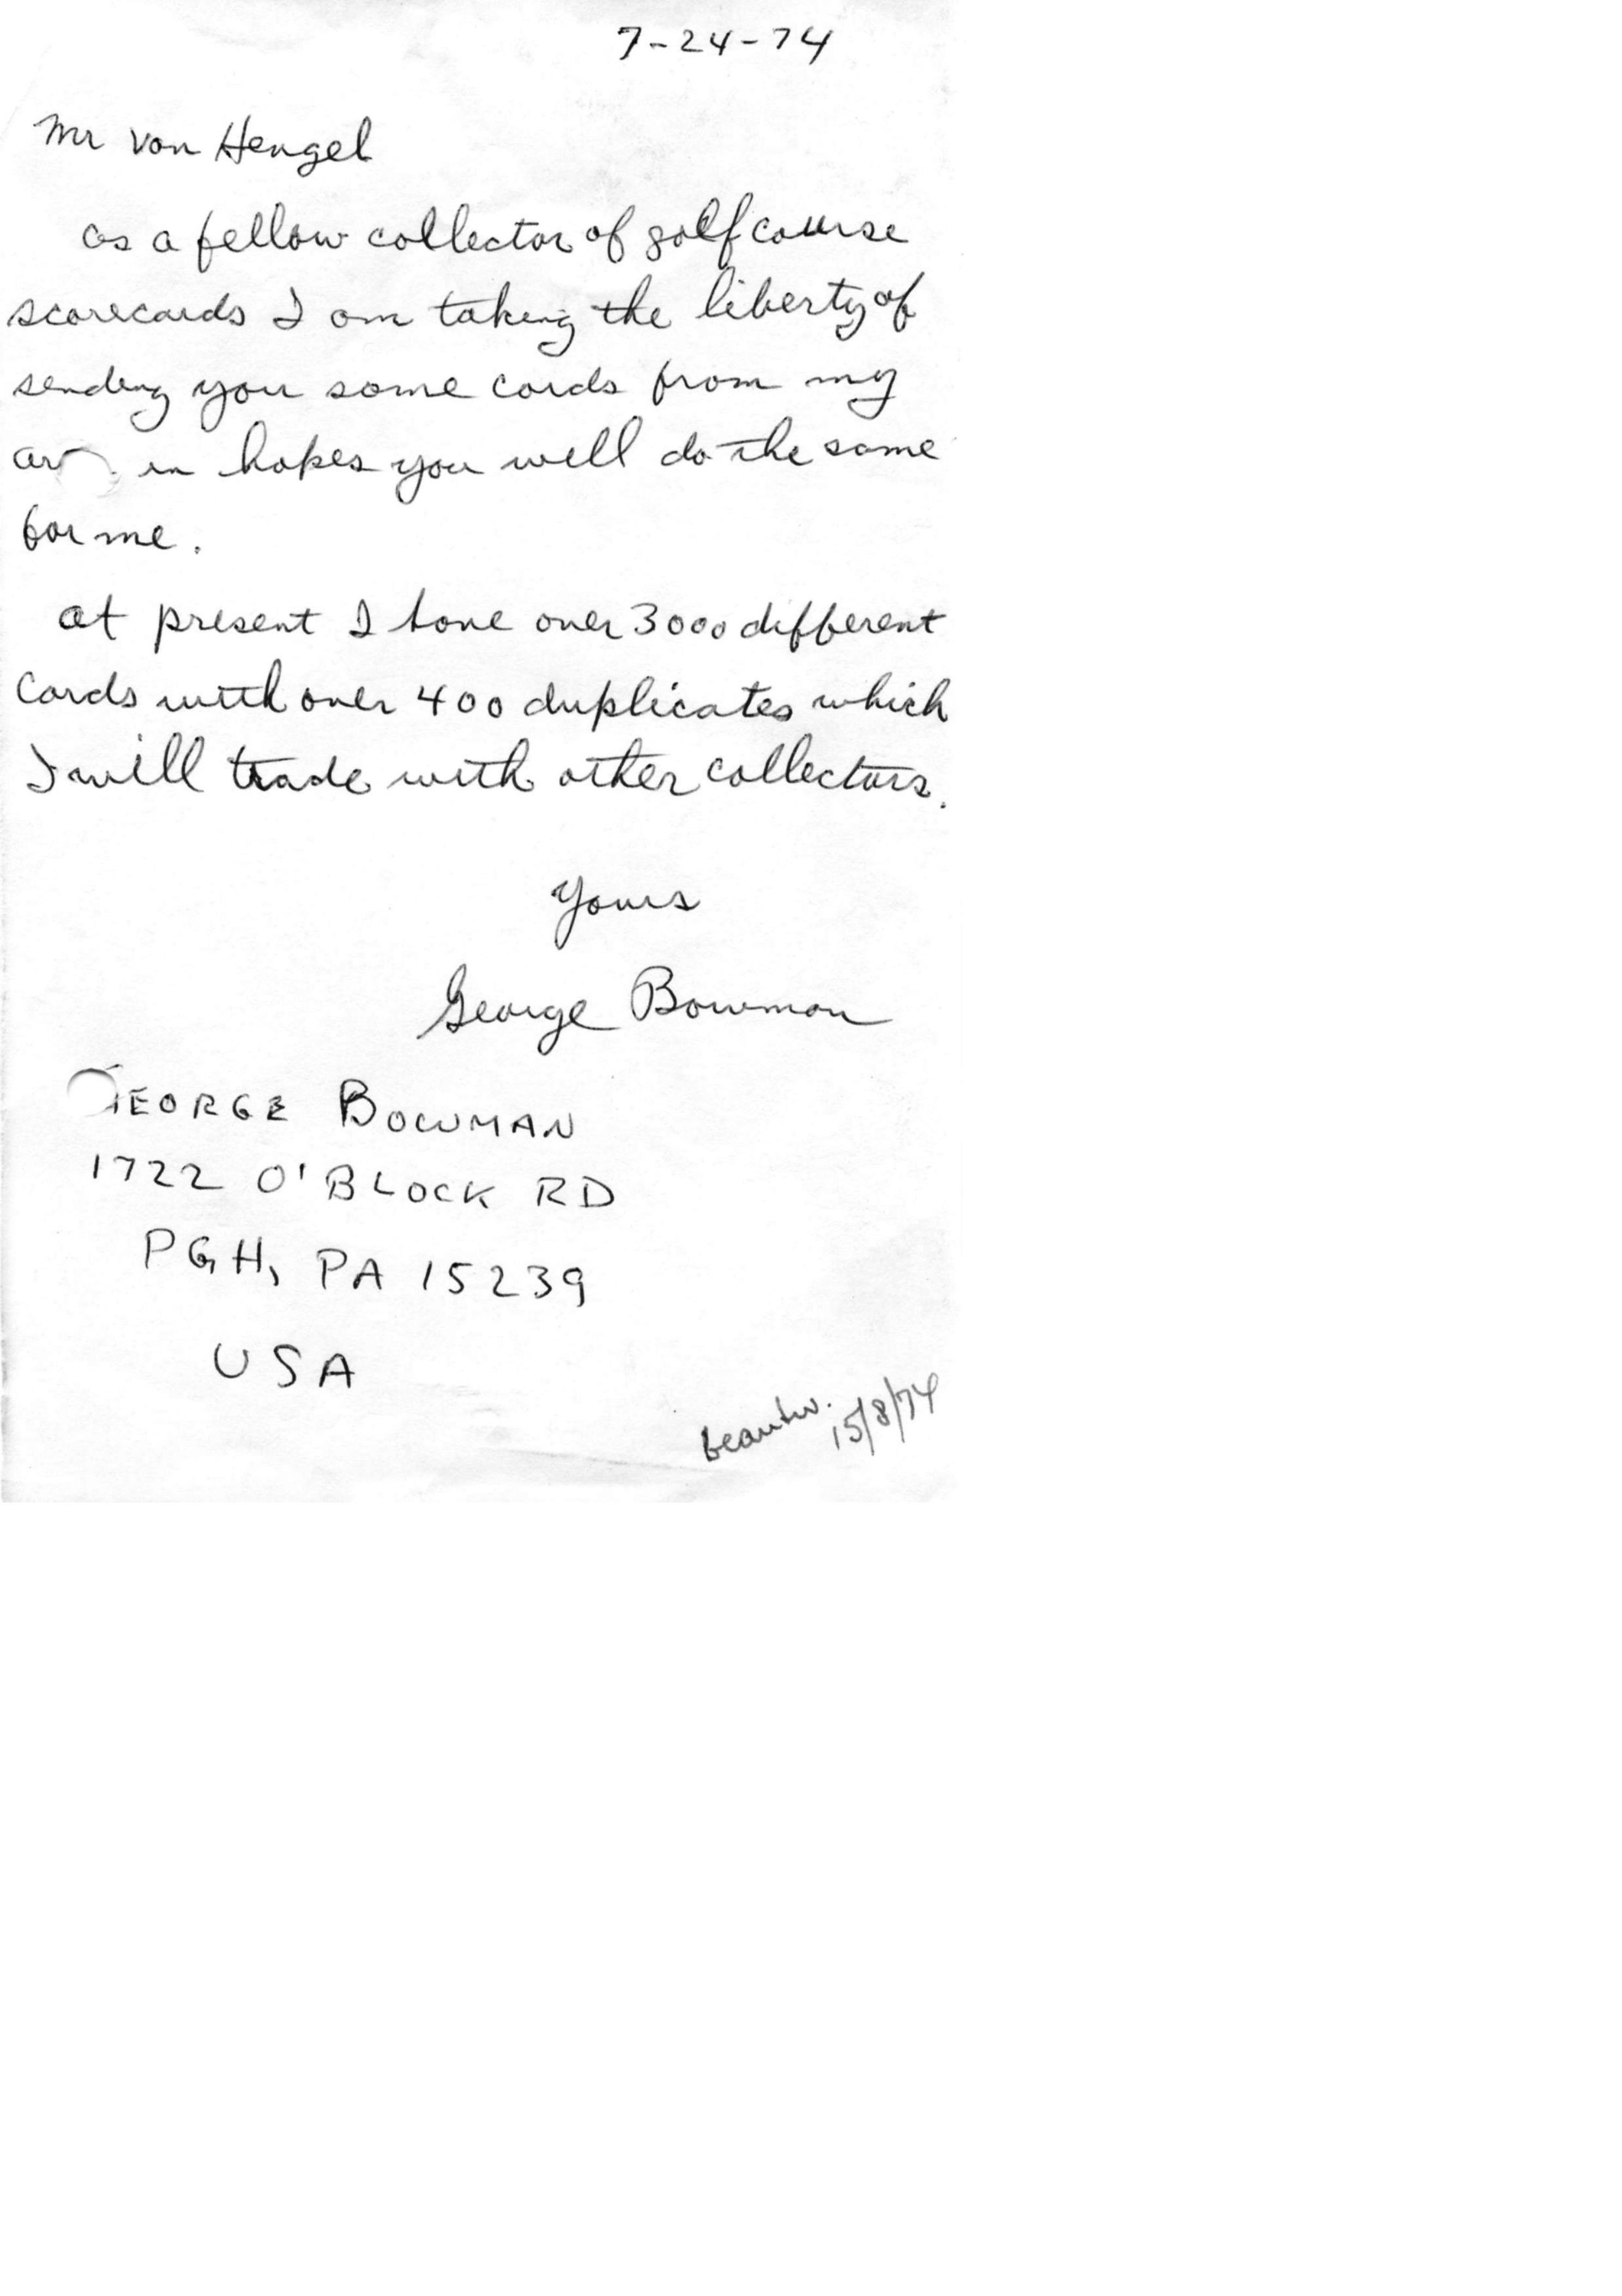 7-24-74
Mr von Hengel
as a fellow collector of golf course
scorecards I am taking the liberty of
sending you some cards from my
in hopes you will do the same
for me.
at present I have over 3000 different
cards with over 400 duplicates which
I will trade with other collectors.
Yours
George Bowman
GEORGE BOWMAN
1722 O'BLOCK RD
PGH, PA 15239
USA
beantw. 15/8/74